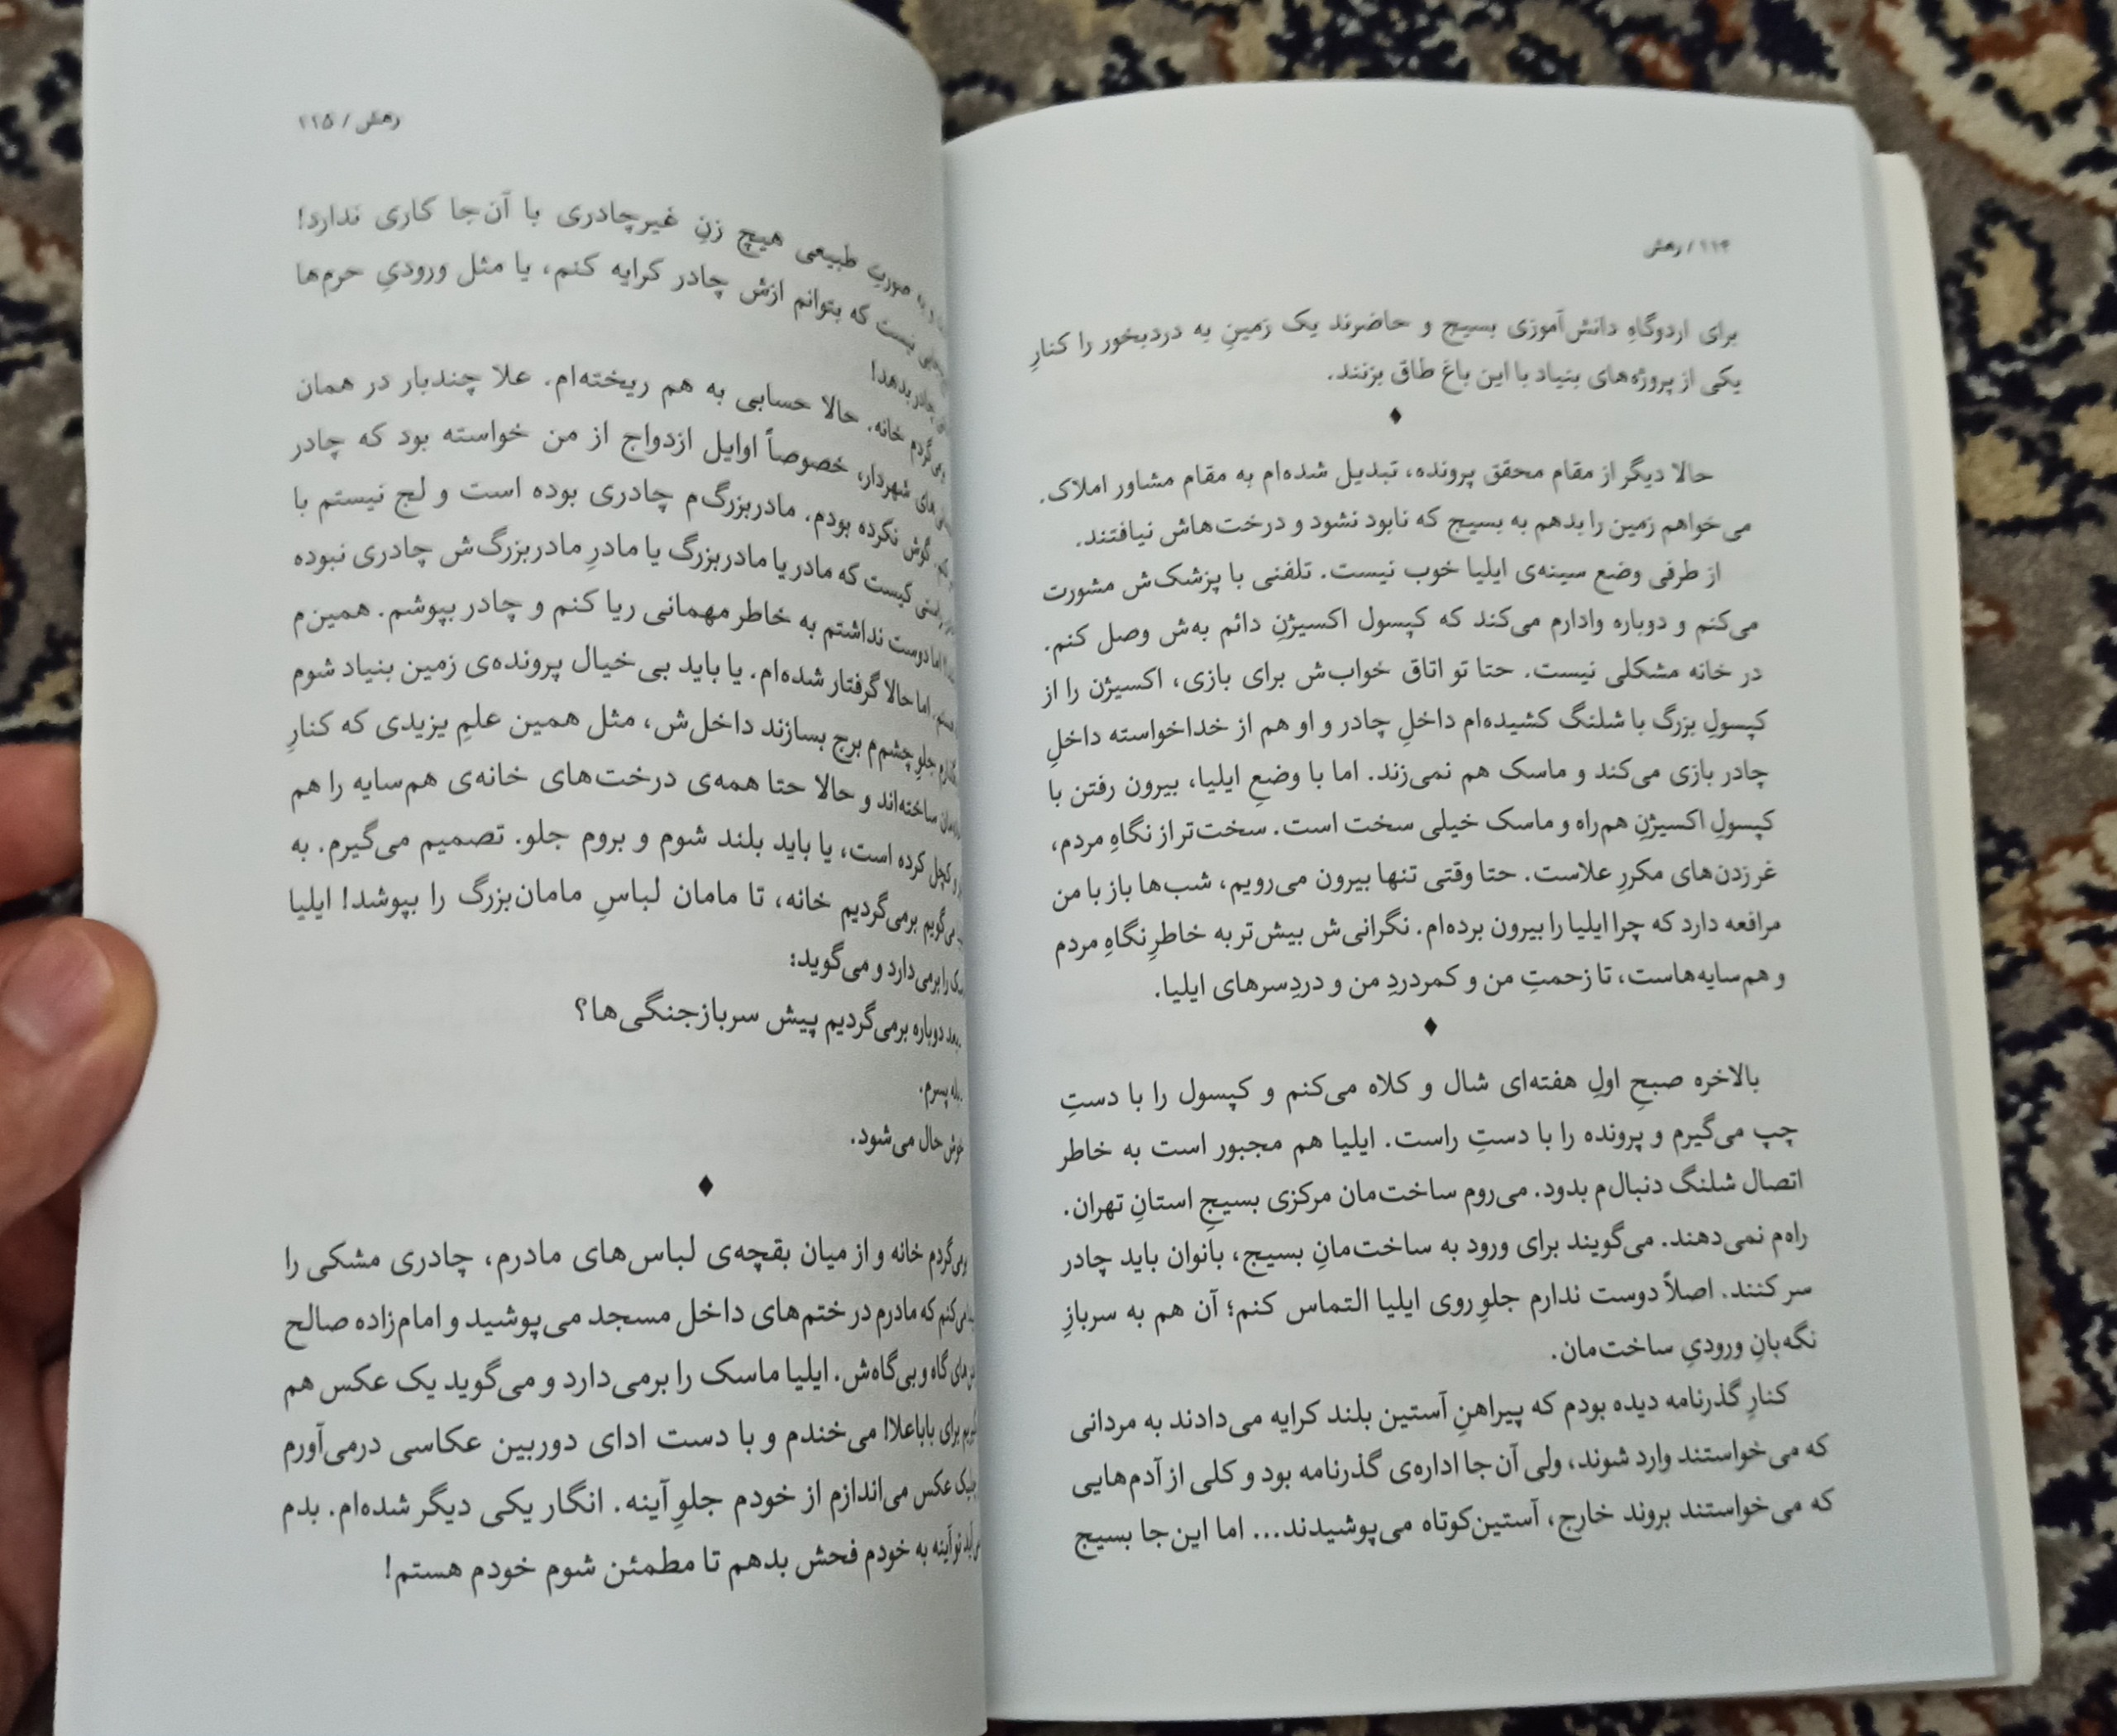 ۱۱۴ / رهش
برای اردوگاهِ دانش‌آموزی بسیج و حاضرند یک زمینِ به دردبخور را کنارِ
یکی از پروژه‌های بنیاد با این باغ طاق بزنند.
♦
حالا دیگر از مقام محقق پرونده، تبدیل شده‌ام به مقام مشاور املاک.
می‌خواهم زمین را بدهم به بسیج که نابود نشود و درخت‌هاش نیافتند.
از طرفی وضع سینه‌ی ایلیا خوب نیست. تلفنی با پزشک‌ش مشورت
می‌کنم و دوباره وادارم می‌کند که کپسول اکسیژنِ دائم به‌ش وصل کنم.
در خانه مشکلی نیست. حتا تو اتاق خواب‌ش برای بازی، اکسیژن را از
کپسولِ بزرگ با شلنگ کشیده‌ام داخلِ چادر و او هم از خداخواسته داخلِ
چادر بازی می‌کند و ماسک هم نمی‌زند. اما با وضعِ ایلیا، بیرون رفتن با
کپسولِ اکسیژنِ هم‌راه و ماسک خیلی سخت است. سخت‌تر از نگاهِ مردم،
غر زدن‌های مکررِ علاست. حتا وقتی تنها بیرون می‌رویم، شب‌ها باز با من
مرافعه دارد که چرا ایلیا را بیرون برده‌ام. نگرانی‌ش بیش‌تر به خاطرِ نگاهِ مردم
و هم‌سایه‌هاست، تا زحمتِ من و کمردردِ من و دردِسرهای ایلیا.
♦
بالاخره صبحِ اولِ هفته‌ای شال و کلاه می‌کنم و کپسول را با دستِ
چپ می‌گیرم و پرونده را با دستِ راست. ایلیا هم مجبور است به خاطر
اتصال شلنگ دنبال‌م بدود. می‌روم ساخت‌مان مرکزی بسیجِ استانِ تهران.
راه‌م نمی‌دهند. می‌گویند برای ورود به ساخت‌مانِ بسیج، بانوان باید چادر
سر کنند. اصلاً دوست ندارم جلوِ روی ایلیا التماس کنم؛ آن هم به سربازِ
نگه‌بانِ ورودیِ ساخت‌مان.
کنارِ گذرنامه دیده بودم که پیراهنِ آستین بلند کرایه می‌دادند به مردانی
که می‌خواستند وارد شوند، ولی آن‌جا اداره‌ی گذرنامه بود و کلی از آدم‌هایی
که می‌خواستند بروند خارج، آستین‌کوتاه می‌پوشیدند... اما این‌جا بسیج
رهش / ۱۱۵
و به صورتِ طبیعی هیچ زنِ غیرچادری با آن‌جا کاری ندارد!
نیست که بتوانم ازش چادر کرایه کنم، یا مثل ورودیِ حرم‌ها
چادر بدهد!
برمی‌گردم خانه. حالا حسابی به هم ریخته‌ام. علا چندبار در همان
شهردار، خصوصاً اوایل ازدواج از من خواسته بود که چادر
گوش نکرده بودم. مادربزرگ‌م چادری بوده است و لج نیستم با
کیست که مادر یا مادربزرگ یا مادرِ مادربزرگ‌ش چادری نبوده
اما دوست نداشتم به خاطر مهمانی ریا کنم و چادر بپوشم. همین‌م
هستم. اما حالا گرفتار شده‌ام. یا باید بی‌خیال پرونده‌ی زمین بنیاد شوم
جلوِ چشم‌م برج بسازند داخل‌ش، مثل همین علمِ یزیدی که کنارِ
ساخته‌اند و حالا حتا همه‌ی درخت‌های خانه‌ی هم‌سایه را هم
کچل کرده است، یا باید بلند شوم و بروم جلو. تصمیم می‌گیرم. به
می‌گویم برمی‌گردیم خانه، تا مامان لباسِ مامان‌بزرگ را بپوشد! ایلیا
را برمی‌دارد و می‌گوید:
بعد دوباره برمی‌گردیم پیش سربازجنگی‌ها؟
بله پسرم.
خوش‌حال می‌شود.
♦
برمی‌گردم خانه و از میان بقچه‌ی لباس‌های مادرم، چادری مشکی را
می‌کنم که مادرم در ختم‌های داخل مسجد می‌پوشید و امام‌زاده صالح
گاه و بی‌گاه‌ش. ایلیا ماسک را برمی‌دارد و می‌گوید یک عکس هم
برای باباعلا! می‌خندم و با دست ادای دوربین عکاسی درمی‌آورم
عکس می‌اندازم از خودم جلوِ آینه. انگار یکی دیگر شده‌ام. بدم
تو آینه به خودم فحش بدهم تا مطمئن شوم خودم هستم!